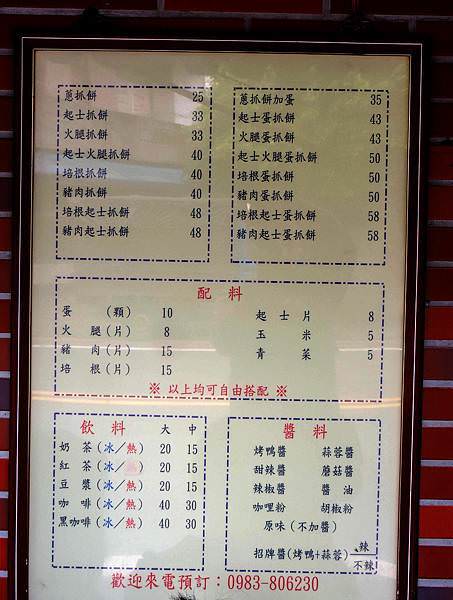 蔥抓餅 25
起士抓餅 33
火腿抓餅 33
起士火腿抓餅 40
培根抓餅 40
豬肉抓餅 40
培根起士抓餅 48
豬肉起士抓餅 48
蔥抓餅加蛋 35
起士蛋抓餅 43
火腿蛋抓餅 43
起士火腿蛋抓餅 50
培根蛋抓餅 50
豬肉蛋抓餅 50
培根起士蛋抓餅 58
豬肉起士蛋抓餅 58
配 料
蛋 (顆) 10
火 腿(片) 8
豬 肉(片) 15
培 根(片) 15
起 士 片 8
玉 米 5
青 菜 5
※ 以上均可自由搭配 ※
飲 料 大 中
奶 茶(冰/熱) 20 15
紅 茶(冰/熱) 20 15
豆 漿(冰/熱) 20 15
咖 啡(冰/熱) 40 30
黑咖啡(冰/熱) 40 30
醬 料
烤鴨醬 蒜蓉醬
甜辣醬 蘑菇醬
辣椒醬 醬 油
咖哩粉 胡椒粉
原味(不加醬)
招牌醬(烤鴨+蒜蓉) 辣
不辣
歡迎來電預訂:0983-806230